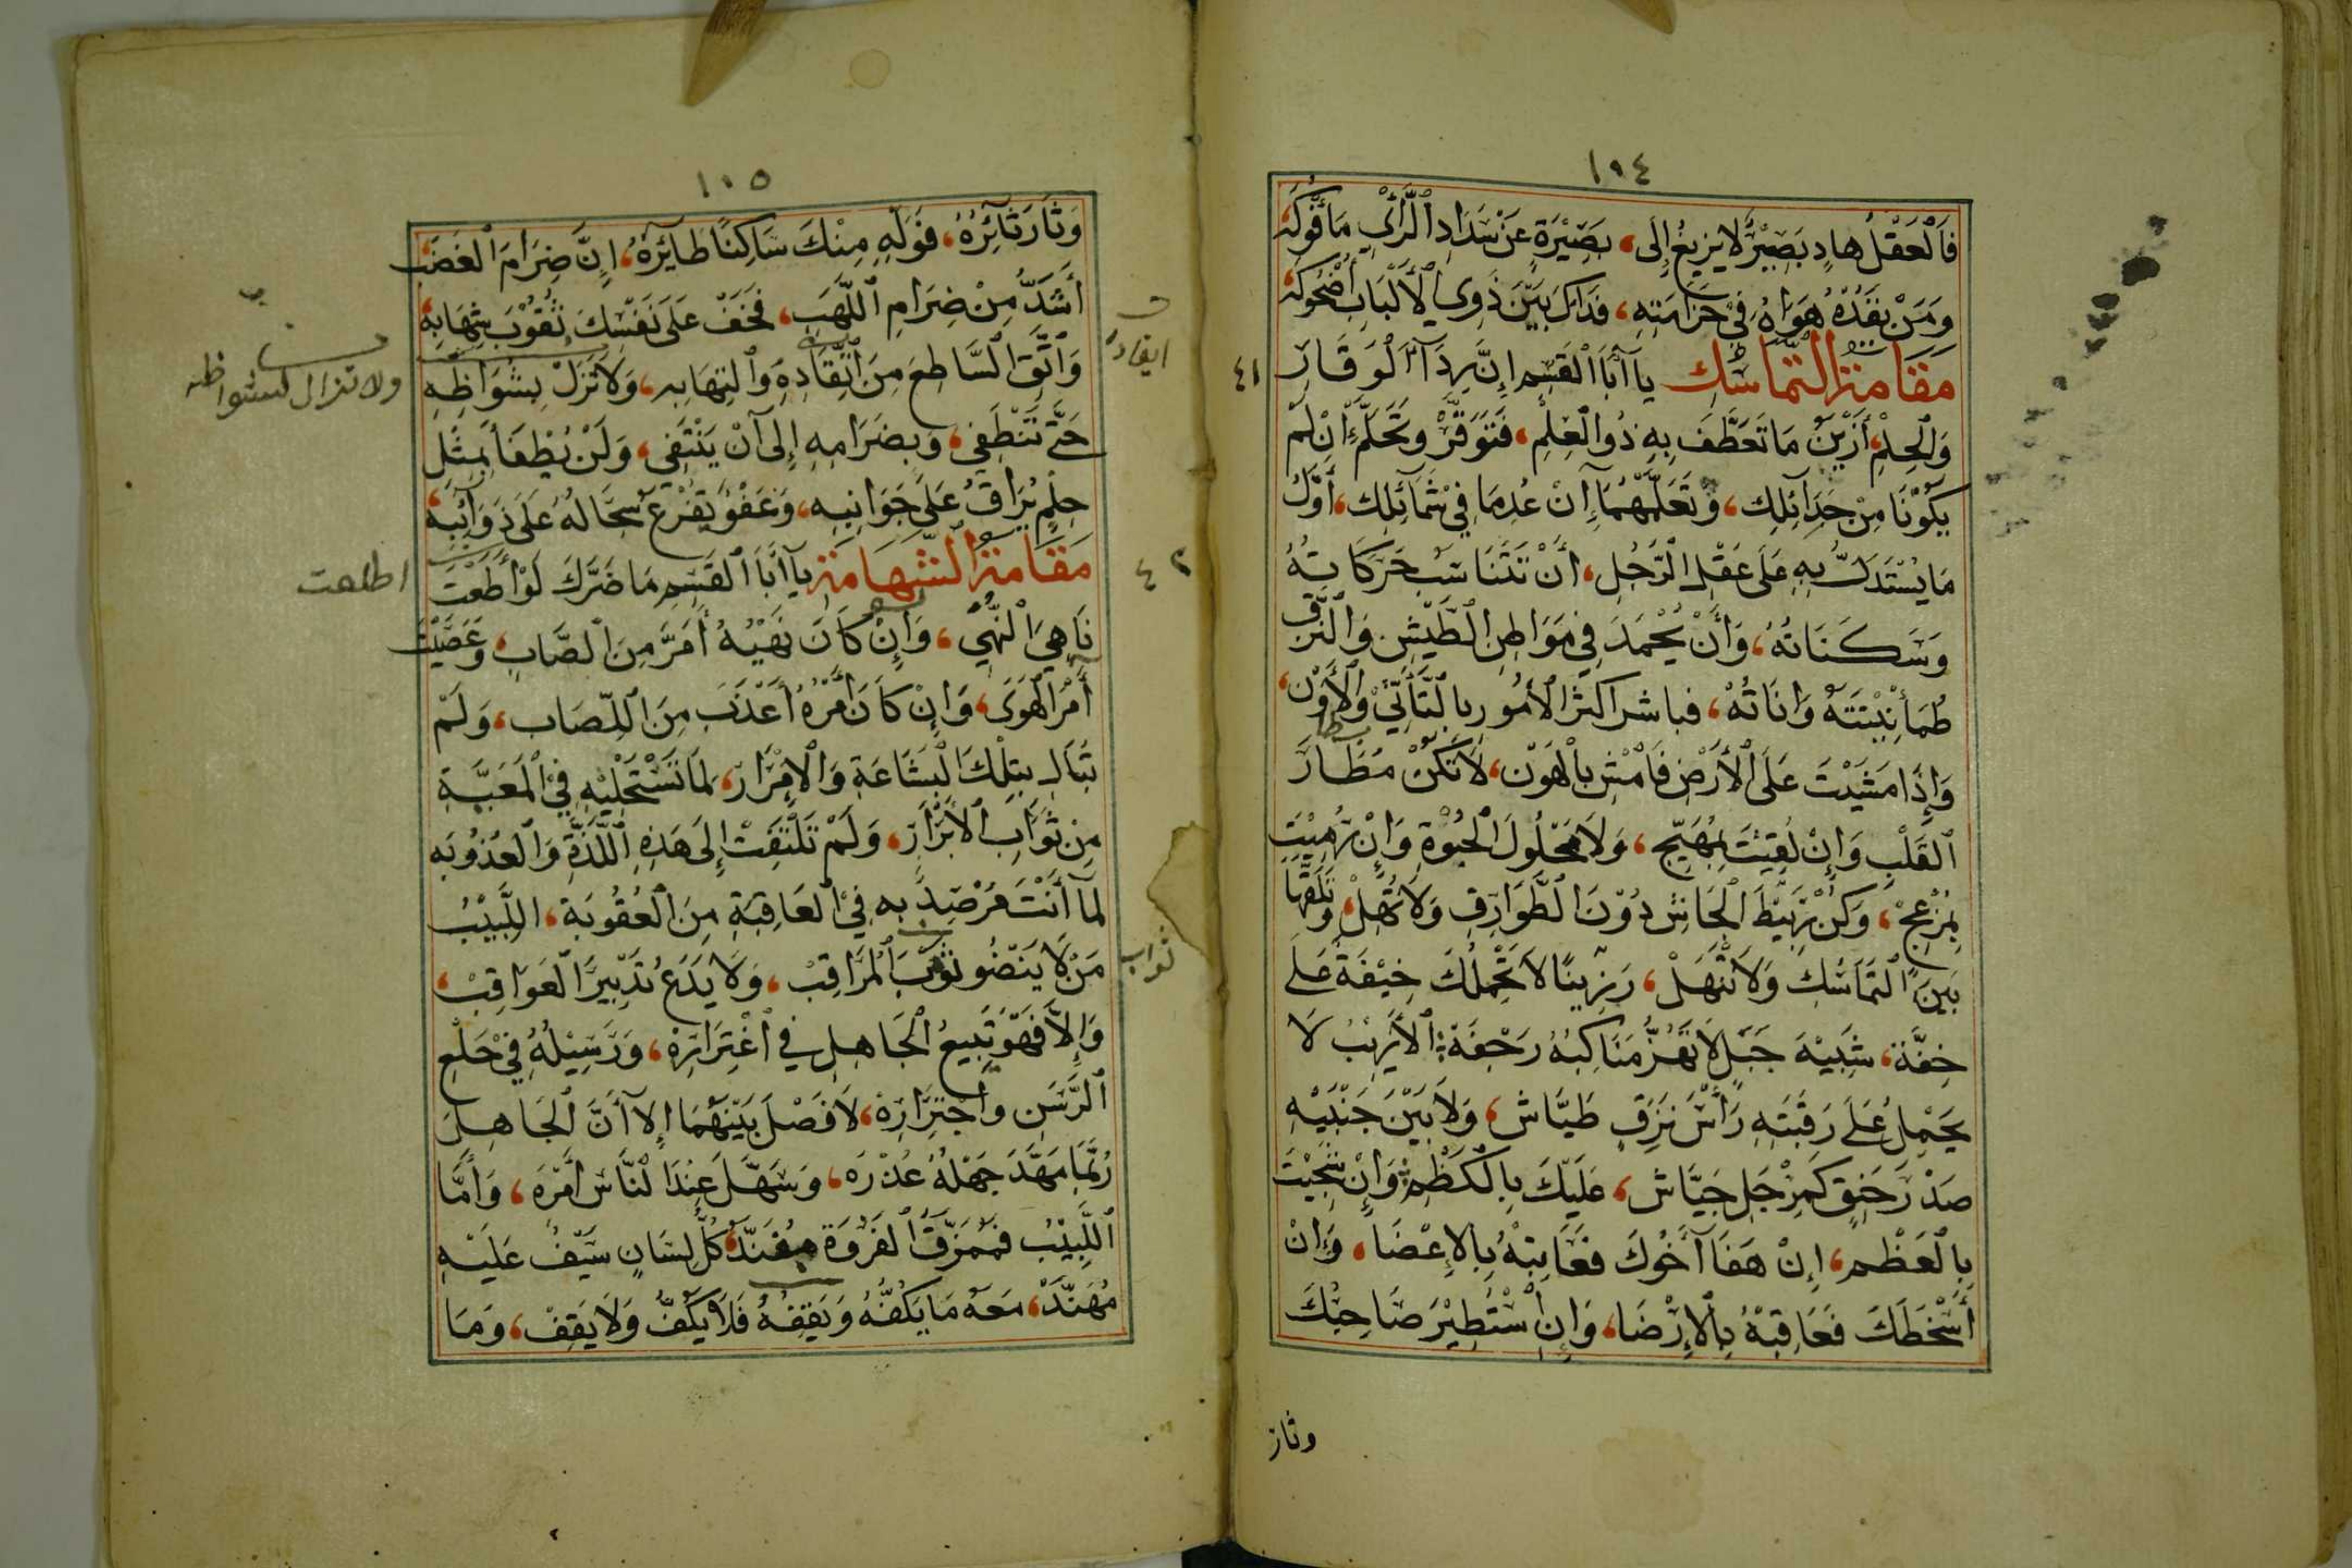 ١٠٤
فَالْعَقْلُ هادٍ بَصِيْرٌ لا يزيغُ إِلَى، بَصِيْرَةٍ عَنْ سَدَادِ الرَّأْيِ مَأْفُوكَة
وَمَنْ يَقُدْهُ هَوَاهُ فِي خَزَامَتِهِ، فَذَاكَ بَيْنَ ذَوِي الْأَلْبَابِ أُضْحُوكَة
مَقَامَةُ التَّمَاسُكِ يا أَبَا الْقَسِمِ إِنَّ رِدَآءَ الْوَقَارِ
٤١
وَالْحِلْمِ، أَزْيَنُ مَا تَعَطَّفَ بِهِ ذُو الْعِلْمِ، فَتَوَقَّرْ وَتَحَلَّمْ، إِنْ لَمْ
يَكُوْنَا مِنْ جَدَآئِلِكَ، وَتَعَلَّمْهُمَا إِنْ عُدِمَا فِيْ شَمَآئِلِكَ، أَوَّلُ
مَا يُسْتَدَلُّ بِهِ عَلَى عَقْلِ الرَّجُلِ، أَنْ تَتَنَاسَبَ حَرَكَاتُهُ
وَسَكَنَاتُهُ، وَأَنْ يُحْمَدَ فِي مَوَاطِنِ الطَّيْشِ وَالنَّزَقِ
طُمَأْنِيْنَتُهُ وَانَاتُهُ، فباشر اكثر الأُمُورِ بِالتَّأَنِّيْ وَالْأَوْنِ،
وَإِذَا مَشَيْتَ عَلَى الْأَرْضِ فَامْشِ بِالْهَوْنِ، لَا تَكُنْ مُطَارَ
الْقَلْبِ وَإِنْ لُقِيْتَ بِمُهَيِّجٍ، وَلَا مَحْلُولَ الْحُبْوَةِ وَإِنْ رُمِيْتَ
بِمُزْعِجْ، وَكُنْ رَبِيْطَ الْجَاشِ دُوْنَ الطَّوَارِقِ وَلَا تُهَلْ، وَتَلَقَّهَا
بَيْنَ التَّمَاسُكِ وَلَا تَنْهَلْ، رَزِيْنًا لَا تَحْمِلُكَ خِيْفَةٌ عَلَى
خِفَّة، شَبِيْهَ جَبَلٍ لَا تَهُزُّ مَنَاكِبَهُ رَجْفَة، الْأَرِيْبُ لَا
يَحْمِلُ عَلَى رَقَبَتِهِ رَأْسَ نَزِقٍ طَيَّاشٍ، وَلَا بَيْنَ جَنْبَيْهِ
صَدْرَ حَنِقٍ كَمِرْجَلٍ جَيَّاشٍ، عَلَيْكَ بِالْكَظْمِ، وَإِنْ شُجِيْتَ
بِالْعَظْمِ، إِنْ هَفَا أَخُوكَ فَعَاتِبْهُ بِالإِغْضَا، وَإِنْ
أَسْخَطَكَ فَعَاقِبْهُ بِالإِرْضَا، وَإِنِ اسْتُطِيْرَ صَاحِبُكَ
وثار
١٠٥
وَثَارَ ثَائِرُهُ، فَوَلِّهِ مِنْكَ سَاكِنًا طَآئِرُهُ، إِنَّ ضِرَامَ الْغَضَب
أَشَدُّ مِنْ ضِرَامِ اللَّهَبِ، فَخَفْ عَلَى نَفْسِكَ ثُقُوْبَ شِهَابِهِ،
وَاتَّقِ السَّاطِعَ مِنَ اتِّقَادِهِ وَالْتِهَابِهِ، وَلَا تَزَلْ بِشُوَاظِهِ
ايقاد
ولا تزال بشواظه
حَتَّى تَنْطَفِي، وَبِضَرَامِهِ إِلَى أَنْ يَنْتَفِي، وَلَنْ يُطْفَأَ بِمِثْلِ
حِلْمٍ يُرَاقُ عَلَى جَوَانِبِهِ، وَعَفْوٍ يُفْرَغُ سِجَالُهُ عَلَى ذَوَآئِبِهِ،
مَقَامَةُ الشَّهَامَةِ يا أَبَا الْقَسِمِ مَا ضَرَّكَ لَوْ أَطَعْتَ
٤٢
اطلعت
نَاهِيَ النُّهَى، وَإِنْ كَانَ نَهْيُهُ أَمَرَّ مِنَ الصَّابِ، وَعَصَيْتَ
أَمْرَ الْهَوَى، وَإِنْ كَانَ أَمْرُهُ أَعْذَبَ مِنَ اللِّصَابِ، وَلَمْ
تُبَالِ بِتِلْكَ الْبَشَاعَةِ وَالْإِمْرَارِ، لِمَا تَسْتَحْلِيْهِ فِي الْمَغَبَّةِ
مِنْ ثَوَابِ الْأَبْرَارِ، وَلَمْ تَلْتَفِتْ إِلَى هَذِهِ اللَّذَّةِ وَالْعُذُوبَه
لِمَآ أَنْتَ مُرْصَدٌ بِهِ فِي الْعَاقِبَةِ مِنَ الْعُقُوبَةِ، اللَّبِيْبُ
مَنْ لَا يَنْضُو ثَوْبَ الْمُرَاقِبْ، وَلَا يَدَعُ تَدْبِيْرَ الْعَوَاقِبْ،
ثواب
وَإِلَّا فَهُوَ تَبِيعُ الْجَاهِلِ فِي اغْتِرَارِهِ، وَرَسِيْلُهُ فِيْ خَلْعِ
الرَّسَنِ وَاجْتِرَارِهْ، لَا فَصْلَ بَيْنَهُمَا إِلَّا أَنَّ الْجَاهِلَ
رُبَّمَا مَهَّدَ جَهْلُهُ عُذْرَه، وَسَهَّلَ عِنْدَ النَّاسِ أَمْرَه، وَأَمَّا
اللَّبِيْبُ فَمُمَزَّقُ الْفَرْوَةِ مُفَنَّدْ، كُلُّ لِسَانٍ سَيْفٌ عَلَيْهِ
مُهَنَّدْ، مَعَهُ مَا يَكُفُّهُ وَيَقِفُهُ فَلَا يَكُفُّ وَلَا يَقِفْ، وَمَا